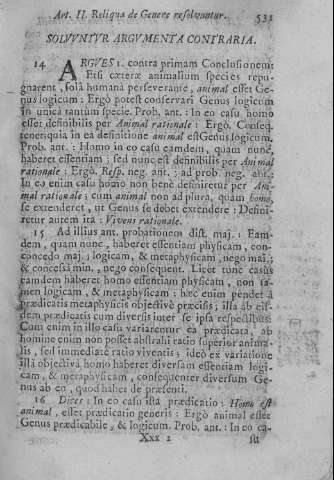 Art. II. Reliqua de Genere resolvuntur. 531
SOLVUNTUR ARGUMENTA CONTRARIA.
14 ARGUES 1. contra primam Conclusionem:
Etsi cæteræ animalium species repu-
gnarent, solâ humanâ perseverante, animal esset Ge-
nus logicum: Ergò potest conservari Genus logicum
in unica tantùm specie. Prob. ant.: In eo casu homo
esset definibilis per Animal rationale: Ergò. Conseq.
tenet; quia in ea definitione animal est Genus logicum.
Prob. ant.: Homo in eo casu eamdem, quam nunc,
haberet essentiam; sed nunc est definibilis per Animal
rationale: Ergò. Resp. neg. ant.; ad prob. neg. ant.:
In eo enim casu homo non benè definiretur per Ani-
mal rationale; cùm animal non ad plura, quàm homo,
se extenderet, ut Genus se debet extendere: Defini-
retur autem ita: Vivens rationale.
15 Ad illius ant. probationem dist. maj.: Eam-
dem, quam nunc, haberet essentiam physicam, con-
cedo maj.; logicam, & metaphysicam, nego maj.;
& concessâ min., nego consequent. Licet tunc casûs
eamdem haberet homo essentiam physicam, non ta-
men logicam, & metaphysicam; hæc enim pendet à
prædicatis metaphysicis objectivè præcisis; illa ab eis-
dem prædicatis cum diversis inter se ipsa respectibus:
Cùm enim in illo casu variarentur ea prædicata, ab
homine enim non posset abstrahi ratio superior anima-
lis, sed immediatè ratio viventis; ideò ex variatione
illa objectiva homo haberet diversam essentiam logi-
cam, & metaphysicam, consequenter diversum Ge-
nus ab eo, quod habet de præsenti.
16 Dices: In eo casu ista prædicatio: Homo est
animal, esset prædicatio generis: Ergò animal esset
Genus prædicabile, & logicum. Prob. ant.: In eo ca-
Xxx 2 su